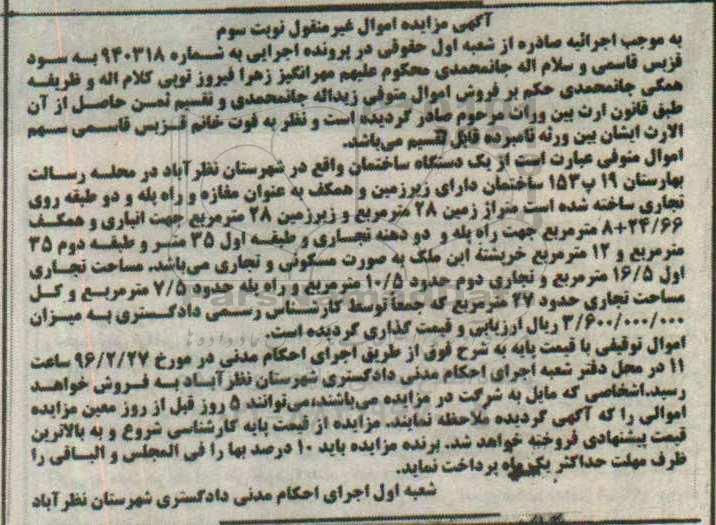 آگهی مزایده اموال غیرمنقول نوبت سوم
به موجب اجرائیه صادره از شعبه اول حقوقی در پرونده اجرایی به شماره ۹۴۰۳۱۸ به سود
قزبس قاسمی و سلام اله جانمحمدی محکوم علیهم مهرانگیز زهرا فیروز توپی کلام اله و ظریفه
همگی جانمحمدی حکم بر فروش اموال متوفی زیداله جانمحمدی و تقسیم ثمن حاصل از آن
طبق قانون ارث بین وراث مرحوم صادر گردیده است و نظر به فوت خانم قزبس قاسمی سهم
الارث ایشان بین ورثه نامبرده قابل تقسیم می‌باشد.
اموال متوفی عبارت است از یک دستگاه ساختمان واقع در شهرستان نظرآباد در محله رسالت
بهارستان ۱۹ پ۱۵۳ ساختمان دارای زیرزمین و همکف به عنوان مغازه و راه پله و دو طبقه روی
تجاری ساخته شده است متراژ زمین ۲۸ مترمربع و زیرزمین ۲۸ مترمربع جهت انباری و همکف
۸+۲۴/۶۶ مترمربع جهت راه پله و دو دهنه تجاری و طبقه اول ۳۵ متر و طبقه دوم ۳۵
مترمربع و ۱۲ مترمربع خرپشته این ملک به صورت مسکونی و تجاری می‌باشد. مساحت تجاری
اول ۱۶/۵ مترمربع و تجاری دوم حدود ۱۰/۵ مترمربع و راه پله حدود ۷/۵ مترمربع و کل
مساحت تجاری حدود ۲۷ مترمربع که جمعا توسط کارشناس رسمی دادگستری به میزان
۳/۶۰۰/۰۰۰/۰۰۰ ریال ارزیابی و قیمت گذاری گردیده است.
اموال توقیفی با قیمت پایه به شرح فوق از طریق اجرای احکام مدنی در مورخ ۹۶/۲/۲۷ ساعت
۱۱ در محل دفتر شعبه اجرای احکام مدنی دادگستری شهرستان نظرآباد به فروش خواهد
رسید.اشخاصی که مایل به شرکت در مزایده می‌باشند،می‌توانند ۵ روز قبل از روز معین مزایده
اموالی را که آگهی گردیده ملاحظه نمایند. مزایده از قیمت پایه کارشناسی شروع و به بالاترین
قیمت پیشنهادی فروخته خواهد شد. برنده مزایده باید ۱۰ درصد بها را فی المجلس و الباقی را
ظرف مهلت حداکثر یک ماه پرداخت نماید.
شعبه اول اجرای احکام مدنی دادگستری شهرستان نظرآباد